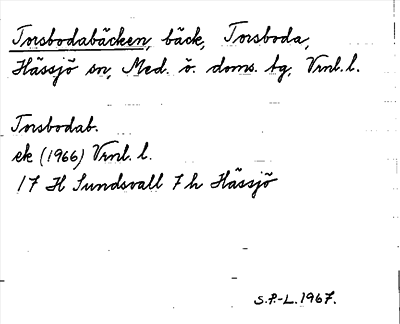 Torsbodabäcken, bäck, Torsboda,
Hässjö sn, Med. ö. doms. tg, Vrnl. l.
Torsbodab.
ek (1966) Vrnl. l.
17 H Sundsvall 7 h Hässjö
S.P.-L. 1967.